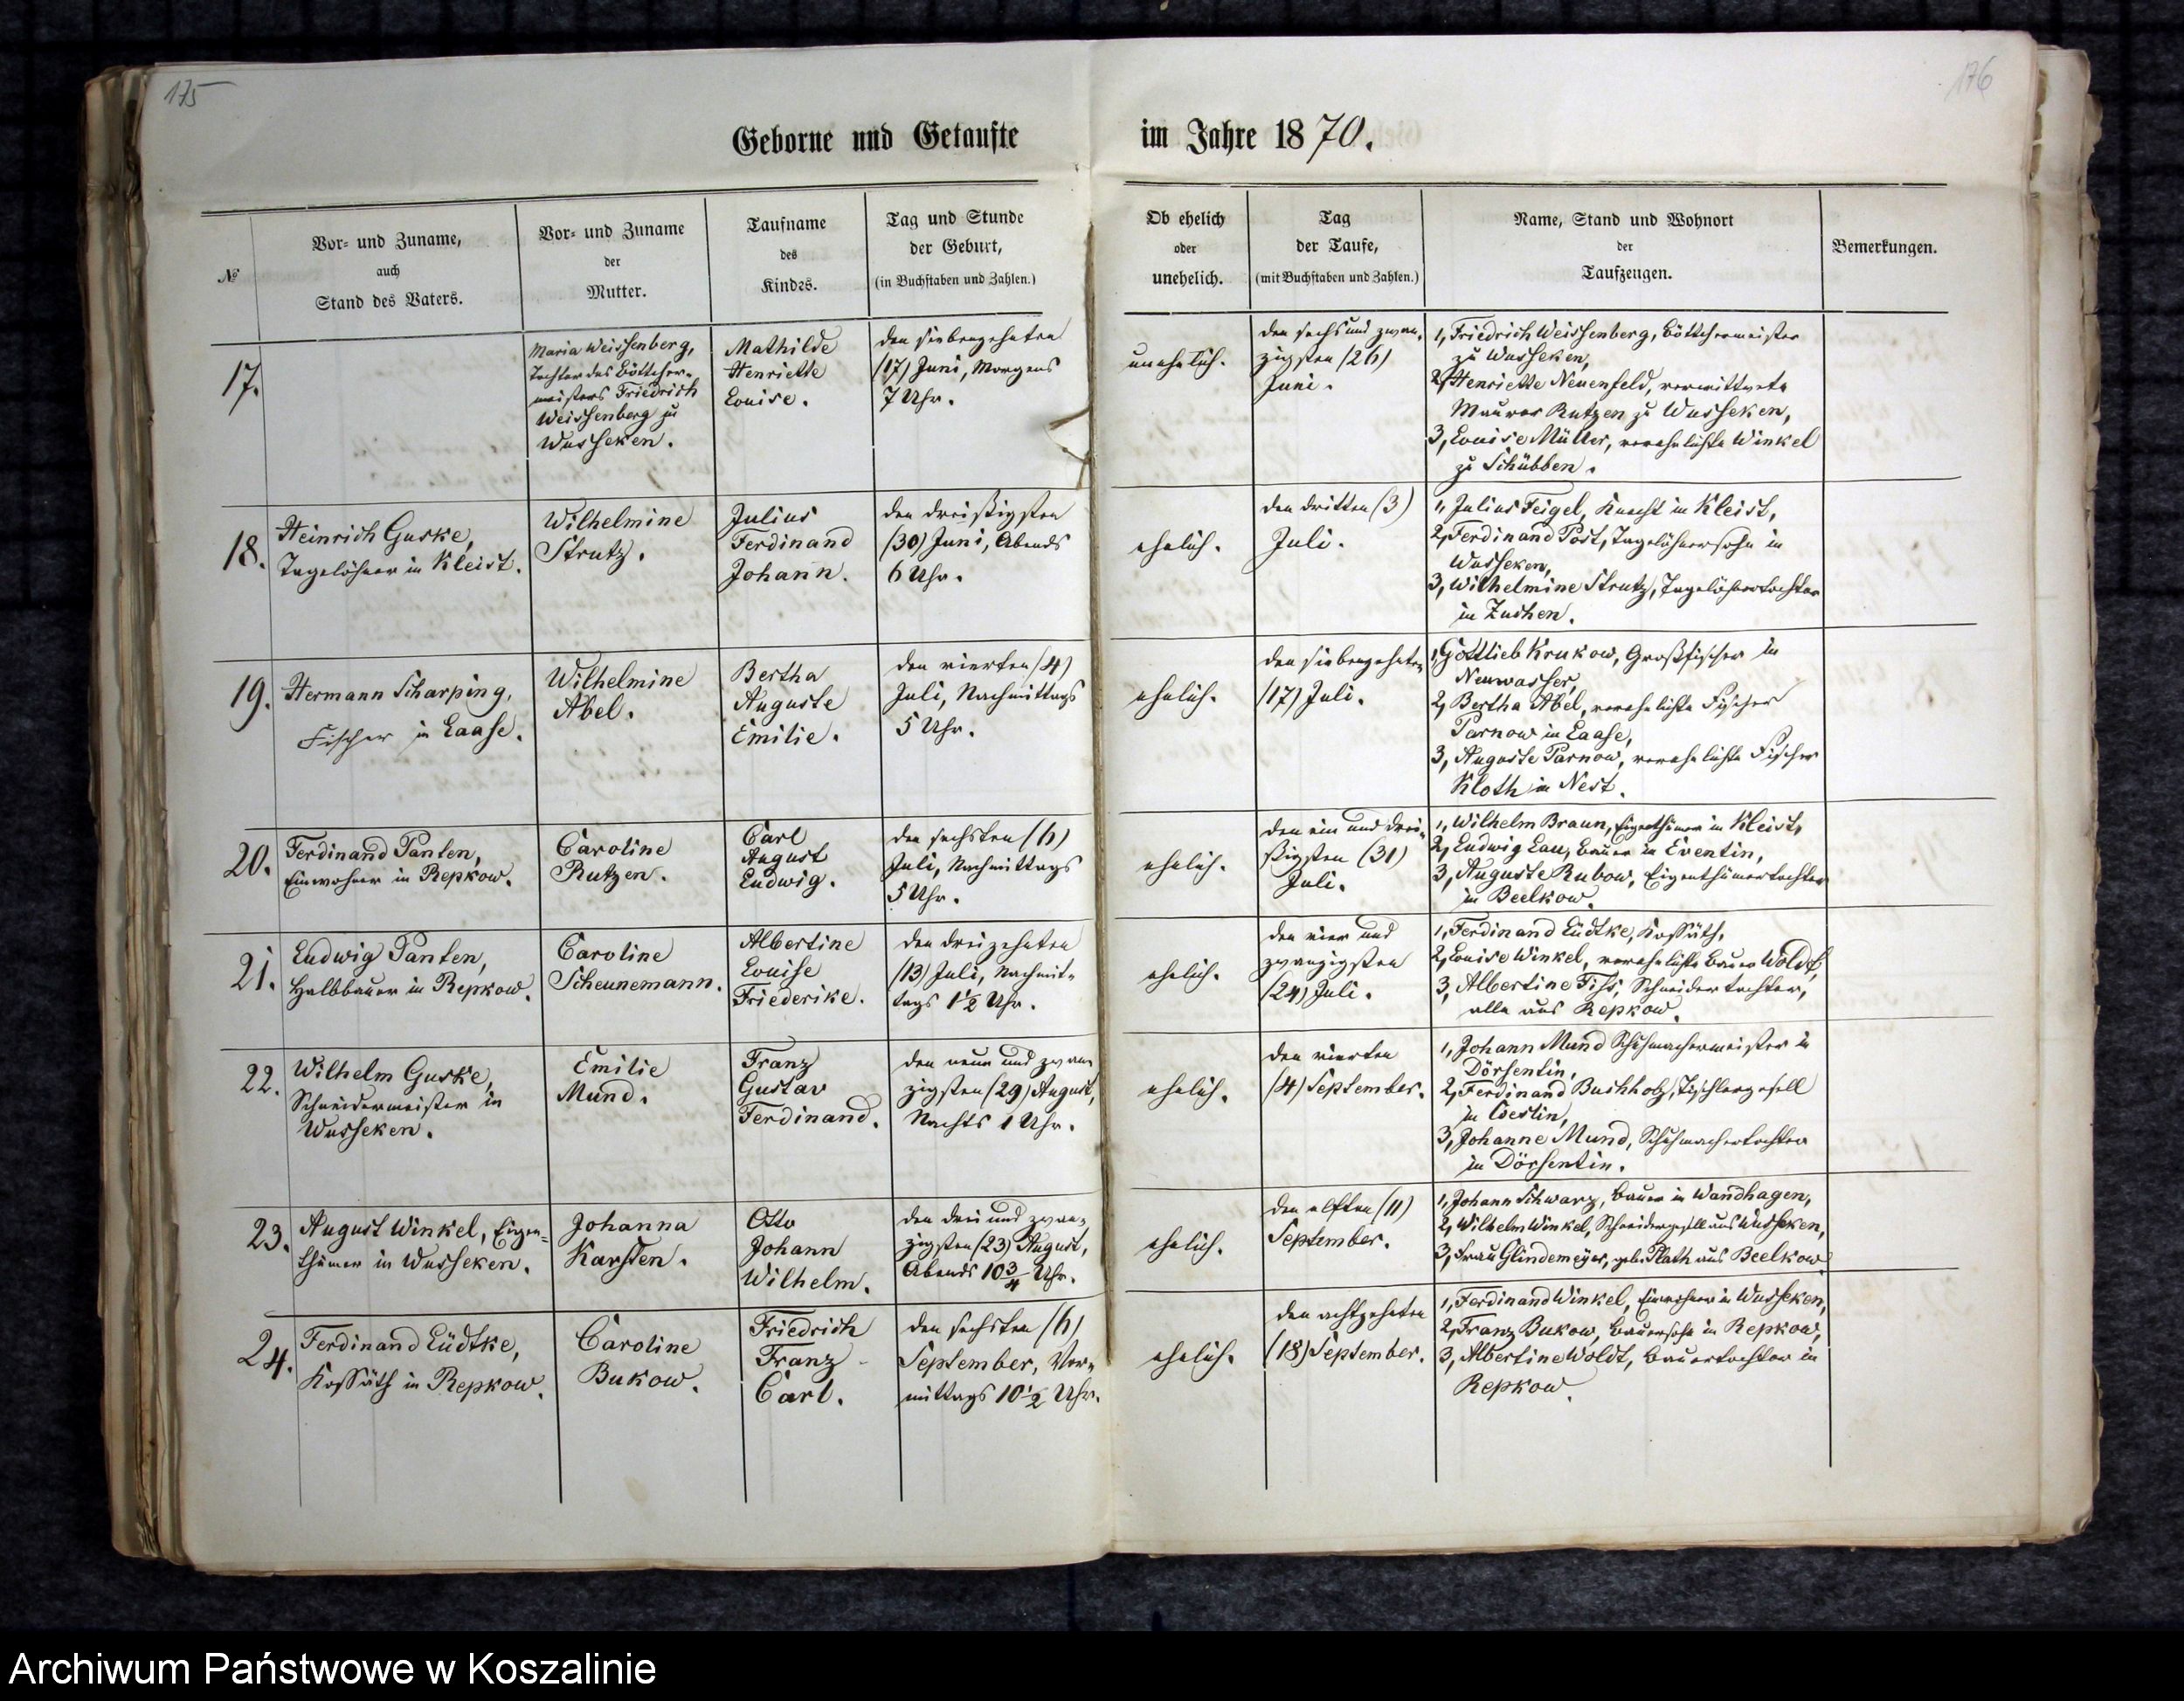 175
176
Geborne und Getaufte
im Jahre 1870.
№
Vor- und Zuname,
auch
Stand des Vaters.
Vor- und Zuname
der
Mutter.
Taufname
des
Kindes.
Tag und Stunde
der Geburt,
(in Buchstaben und Zahlen.)
Ob ehelich
oder
unehelich.
Tag
der Taufe,
(mit Buchstaben und Zahlen.)
Name, Stand und Wohnort
der
Taufzeugen.
Bemerkungen.
17.
Maria Weissenberg,
Tochter des Böttcher-
meisters Friedrich
Weissenberg zu
Wusseken.
Mathilde
Henriette
Louise.
den siebenzehnten
(17) Juni, Morgens
7 Uhr.
unehelich.
den sechs und zwan-
zigsten (26)
Juni.
1, Friedrich Weissenberg, Böttchermeister
zu Wusseken,
2, Henriette Neuenfeld, verwittwete
Maurer Rutzen zu Wusseken,
3, Louise Müller, verehelichte Winkel
zu Schübben.
18.
Heinrich Guske,
Tagelöhner in Kleist.
Wilhelmine
Strutz.
Julius
Ferdinand
Johann.
den dreißigsten
(30) Juni, Abends
6 Uhr.
ehelich.
den dritten (3)
Juli.
1, Julius Feigel, Knecht in Kleist,
2, Ferdinand Post, Tagelöhnersohn in
Wusseken,
3, Wilhelmine Strutz, Tagelöhnertochter
in Zuchen.
19.
Hermann Scharping,
Fischer in Laase.
Wilhelmine
Abel.
Bertha
Auguste
Emilie.
den vierten (4)
Juli, Nachmittags
5 Uhr.
ehelich.
den siebenzehnten
(17) Juli.
1, Gottlieb Krukow, Großfischer in
Neuwasser,
2, Bertha Abel, verehelichte Fischer
Parnow in Laase,
3, Auguste Parnow, verehelichte Fischer
Kloth in Nest.
20.
Ferdinand Panten,
Einwohner in Repkow.
Caroline
Rutzen.
Carl
August
Ludwig.
den sechsten (6)
Juli, Nachmittags
5 Uhr.
ehelich.
den ein und drei-
ßigsten (31)
Juli.
1, Wilhelm Braun, Eigenthümer in Kleist,
2, Ludwig Lau, Bauer in Eventin,
3, Auguste Rubow, Eigenthümertochter
in Beelkow.
21.
Ludwig Panten,
Halbbauer in Repkow.
Caroline
Scheunemann.
Albertine
Louise
Friederike.
den dreizehnten
(13) Juli, Nachmit-
tags 1½ Uhr.
ehelich.
den vier und
zwanzigsten
(24) Juli.
1, Ferdinand Lüdtke, Kossäth,
2, Louise Winkel, verehelichte Bauer Woldt,
3, Albertine Fiss, Schneidertochter,
alle aus Repkow.
22.
Wilhelm Guske,
Schneidermeister in
Wusseken.
Emilie
Mund.
Franz
Gustav
Ferdinand.
den neun und zwan-
zigsten (29) August,
Nachts 1 Uhr.
ehelich.
den vierten
(4) September.
1, Johann Mund Schuhmachermeister in
Dörsentin,
2, Ferdinand Buchholz, Tischlergesell
in Coeslin,
3, Johanne Mund, Schuhmachertochter
in Dörsentin.
23.
August Winkel, Eigen-
thümer in Wusseken.
Johanna
Karsten.
Otto
Johann
Wilhelm.
den drei und zwan-
zigsten (23) August,
Abends 10¾ Uhr.
ehelich.
den elften (11)
September.
1, Johann Schwarz, Bauer in Wandhagen,
2, Wilhelm Winkel, Schneidergesell aus Wusseken,
3, Frau Glindemeyer, geb. Plath aus Beelkow.
24.
Ferdinand Lüdtke,
Kossäth in Repkow.
Caroline
Bukow.
Friedrich
Franz
Carl.
den sechsten (6)
September, Vor-
mittags 10½ Uhr.
ehelich.
den achtzehnten
(18) September.
1, Ferdinand Winkel, Einwohner in Wusseken,
2, Franz Bukow, Bauersohn in Repkow,
3, Albertine Woldt, Bauertochter in
Repkow.
Archiwum Państwowe w Koszalinie